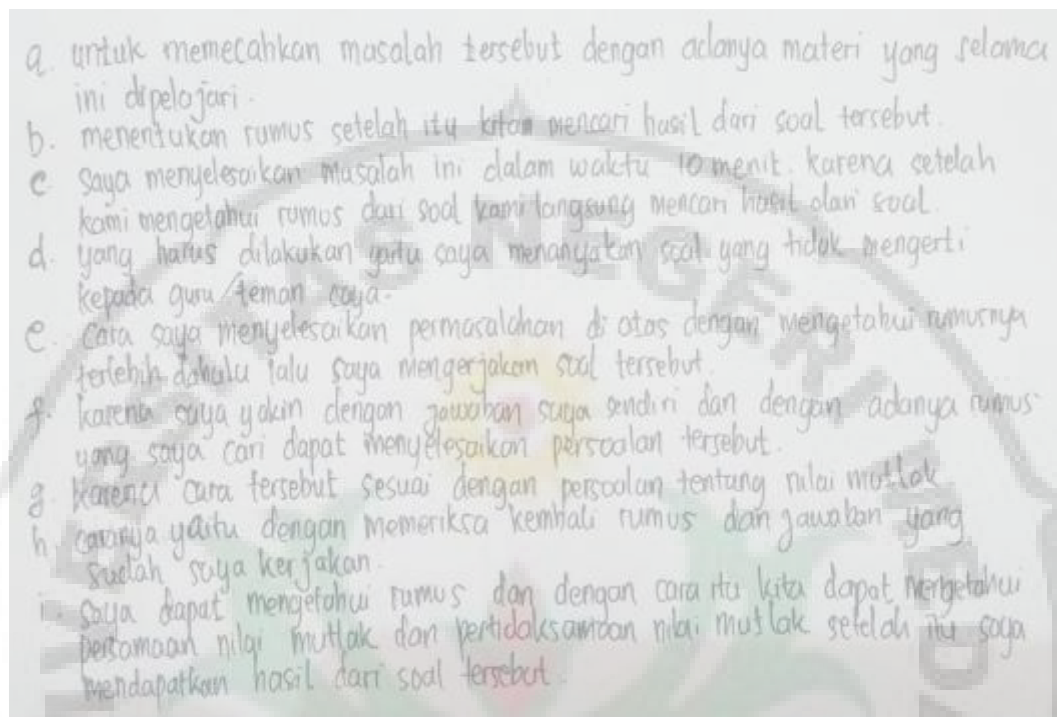 a. untuk memecahkan masalah tersebut dengan adanya materi yang selama
ini dipelajari.
b. menentukan rumus setelah itu kitan mencari hasil dari soal tersebut.
c. Saya menyelesaikan masalah ini dalam waktu 10 menit. karena setelah
kami mengetahui rumus dari soal kami langsung mencari hasil dari soal.
d. yang harus dilakukan yaitu saya menanyakan soal yang tidak mengerti
kepada guru/teman saya.
e. Cara saya menyelesaikan permasalahan di atas dengan mengetahui rumusnya
terlebih dahulu lalu saya mengerjakan soal tersebut.
f. karena saya yakin dengan jawaban saya sendiri dan dengan adanya rumus
yang saya cari dapat menyelesaikan persoalan tersebut.
g. karena cara tersebut sesuai dengan persoalan tentang nilai mutlak
h. caranya yaitu dengan memeriksa kembali rumus dan jawaban yang
sudah saya kerjakan.
i. saya dapat mengetahui rumus dan dengan cara itu kita dapat mengetahui
persamaan nilai mutlak dan pertidaksamaan nilai mutlak setelah itu saya
mendapatkan hasil dari soal tersebut.